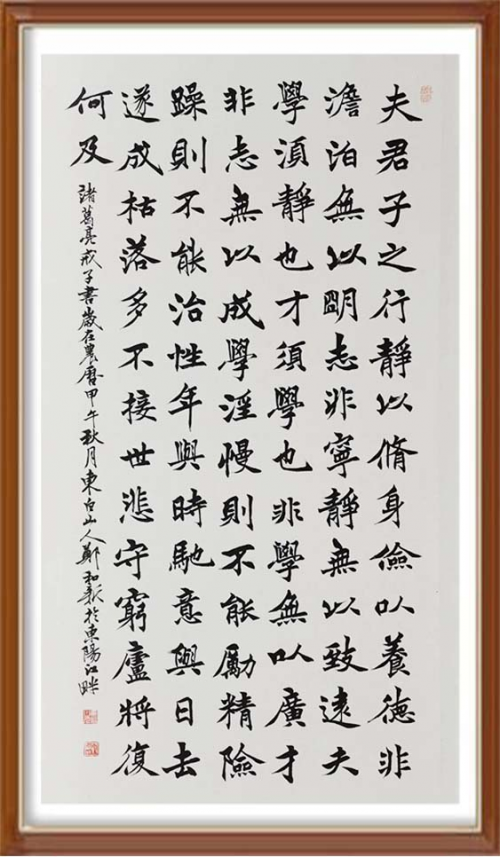 夫君子之行靜以脩身儉以養德非
澹泊無以明志非寧靜無以致遠夫
學湏靜也才須學也非學無以廣才
非志無以成學淫慢則不能勵精險
躁則不能治性年與時馳意與日去
遂成枯落多不接世悲守窮廬將復
何及
諸葛亮戒子書歲在農曆甲午秋月東白山人鄭和新於東陽江畔